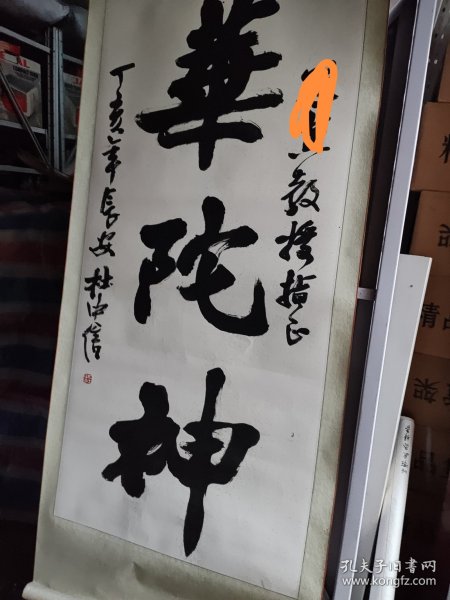 教授指正
華陀神
丁亥年長安杜中信
孔夫子旧书网
www.kongfz.com